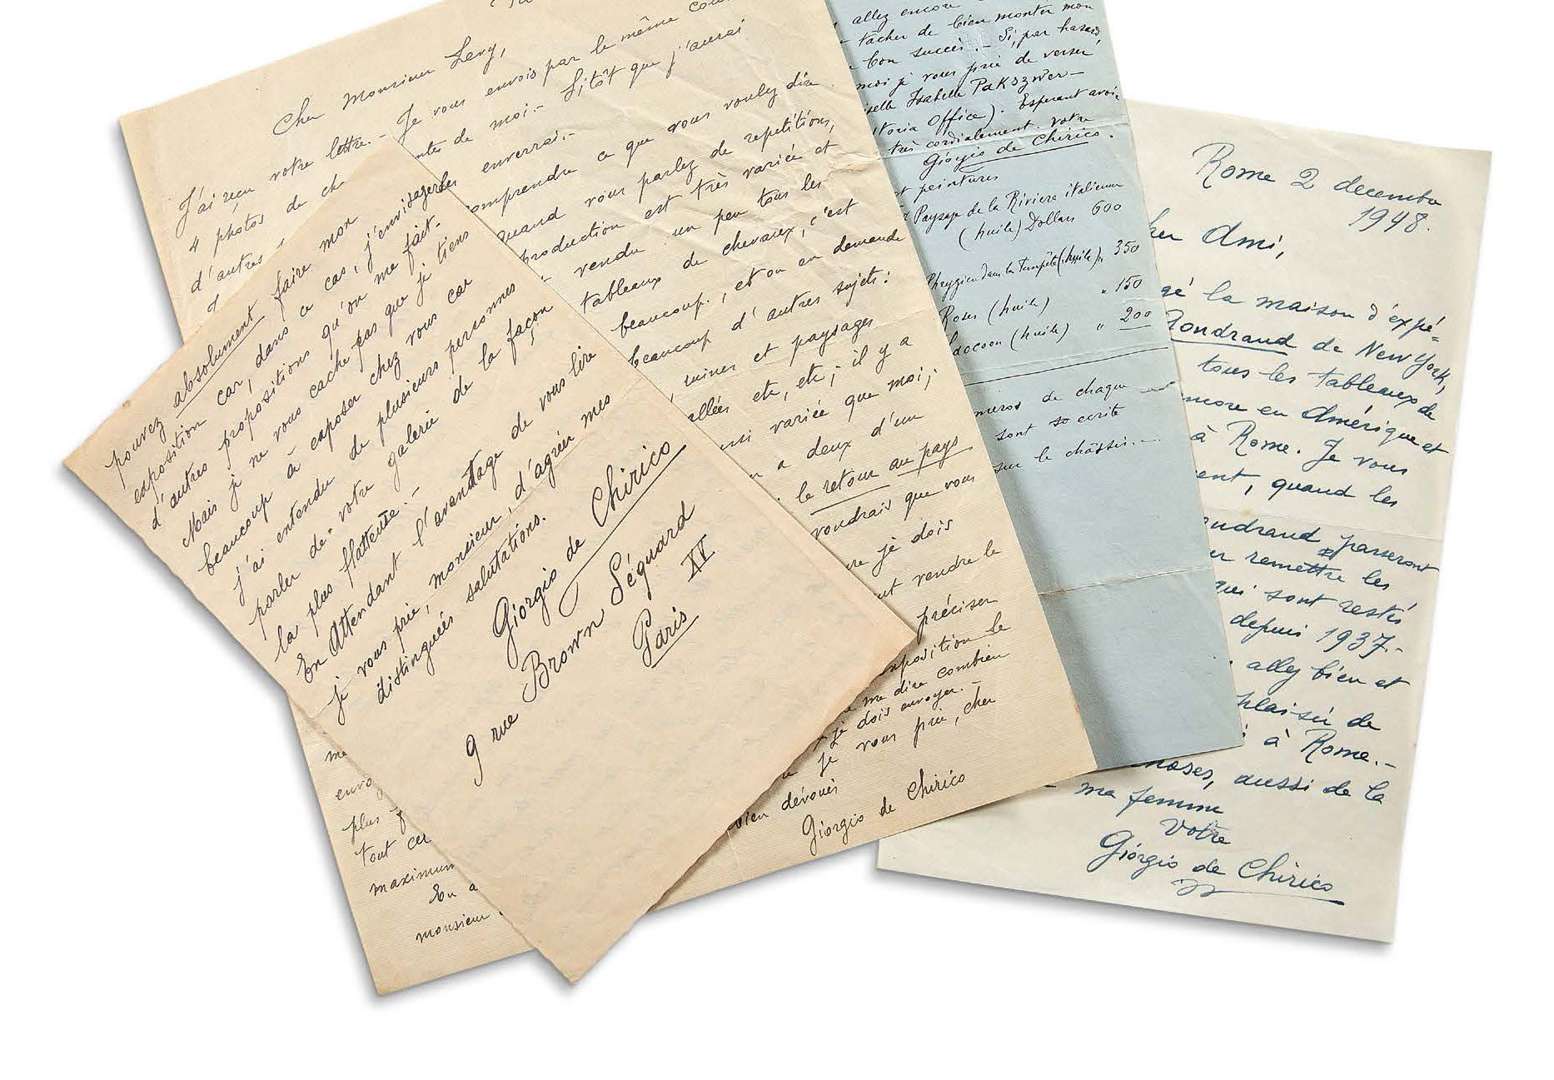 pouvez absolument faire mon
exposition car, dans ce cas, j'envisagerais
d'autres propositions qu'on me fait.-
Mais je ne vous cache pas que je tiens
beaucoup à exposer chez vous car
j'ai entendu de plusieurs personnes
parler de votre galerie de la façon
la plus flatteuse.-
En attendant l'avantage de vous lire
je vous prie, monsieur, d'agréer mes
distinguées salutations.
Giorgio de Chirico
9 rue Brown Séquard
Paris XV
Cher Monsieur Levy,
J'ai reçu votre lettre.- Je vous envois par le même
4 photos de moi.- Sitôt que j'aurai
d'autres enverrai.-
comprendre ce que vous voulez dire
quand vous parlez de repetitions,
production est très variée et
vendu un peu tous les
tableaux de chevaux, c'est
beaucoup, et on en demande
beaucoup d'autres sujets:
ruines et paysages
etc, etc; il y a
aussi variée que moi;
a deux d'un
le retour au pays
voudrais que vous
je dois
vendre le
préciser
exposition le
me dire combien
je dois envoyer.-
je vous prie, cher
bien dévoué
Giorgio de Chirico
me
plus
tout
maximum
En
monsieur
allez encore
tacher de bien monter mon
bon succès.- Si, par hasard,
moi je vous prie de verser
Isabelle Pakszwer-
Office). Esperant avoir
très cordialement votre
Giorgio de Chirico.
peintures
Paysage de la Riviere italienne
(huile) Dollars 600
dans la Tempête (huile) " 350
Roses (huile) " 150
(huile) " 200
numeros de chaque
sont so ecrite
sur le châssis.-
Rome 2 decembre
1948.
Cher Ami,
la maison d'expé=
de New York,
tous les tableaux de
encore en Amérique et
à Rome. Je vous
quand les
passeront
remettre les
qui sont restés
depuis 1937.-
allez bien et
plaisir de
à Rome.-
choses, aussi de la
ma femme
Votre
Giorgio de Chirico